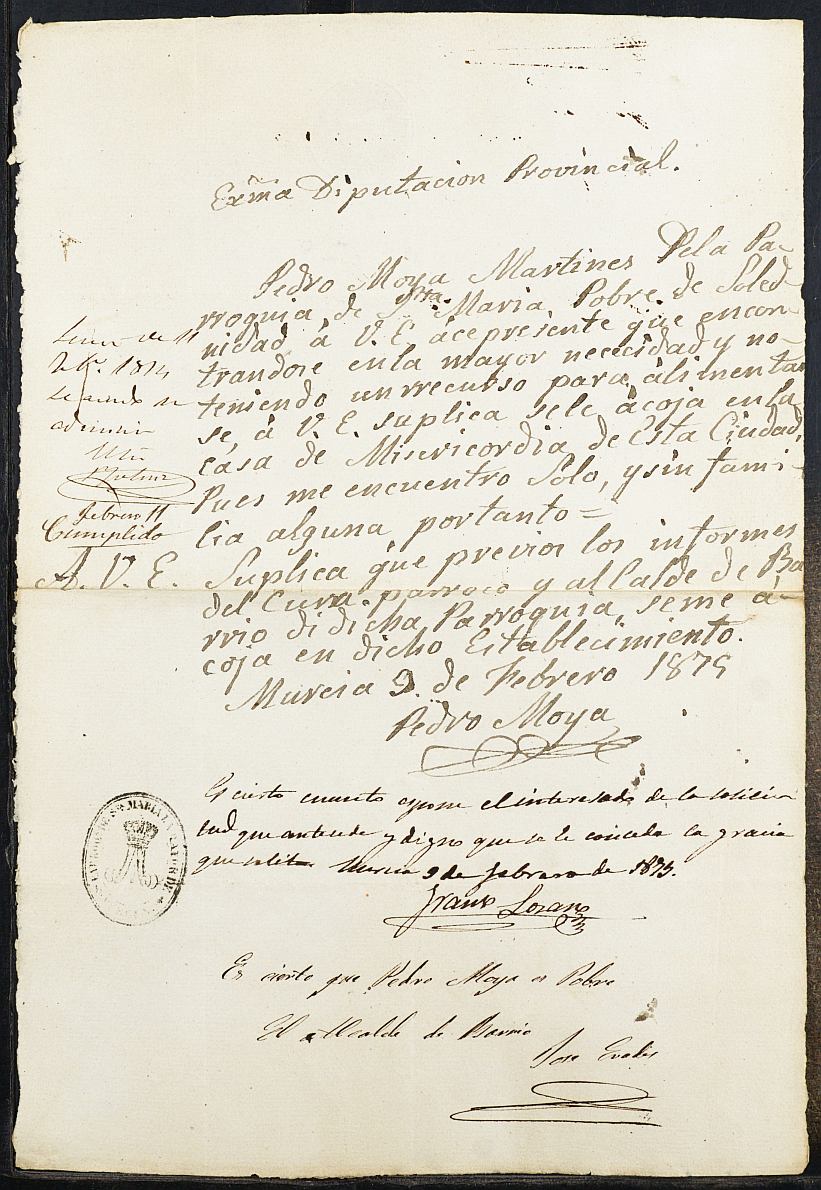 Exma Diputacion Provincial.
Pedro Moya Martines Dela Pa-
rroquia de Srta. Maria, Pobre de Soled-
nidad á V. E. ácepresente que encon-
trandose enla mayor nececidad y no-
teniendo unrrecurso para, álimentar
se, á V. E. suplica sele ácoja enla
casa de Misericordia de Esta Ciudad,
Pues me encuentro Solo, ysin fami-
lia alguna portanto =
A. V. E. Suplica que previos los informes
del Cura. parroco y alCalde de Ba
rrio didicha Parroquia, seme á-
coja en dicho Establecimiento.
Murcia 9 de Febrero 1875
Pedro Moya
de 11
Se acuerdo su
admision
Febrero 11
Cumplido
Es cierto cuanto espone el interesado de la solici
tud que antecede y digno que se le conceda la gracia
que solicita Murcia 9 de febrero de 1875.
Franco Lozano
Es cierto que Pedro Moya es Pobre
El Alcalde de Barrio
Jose
STA MARIA